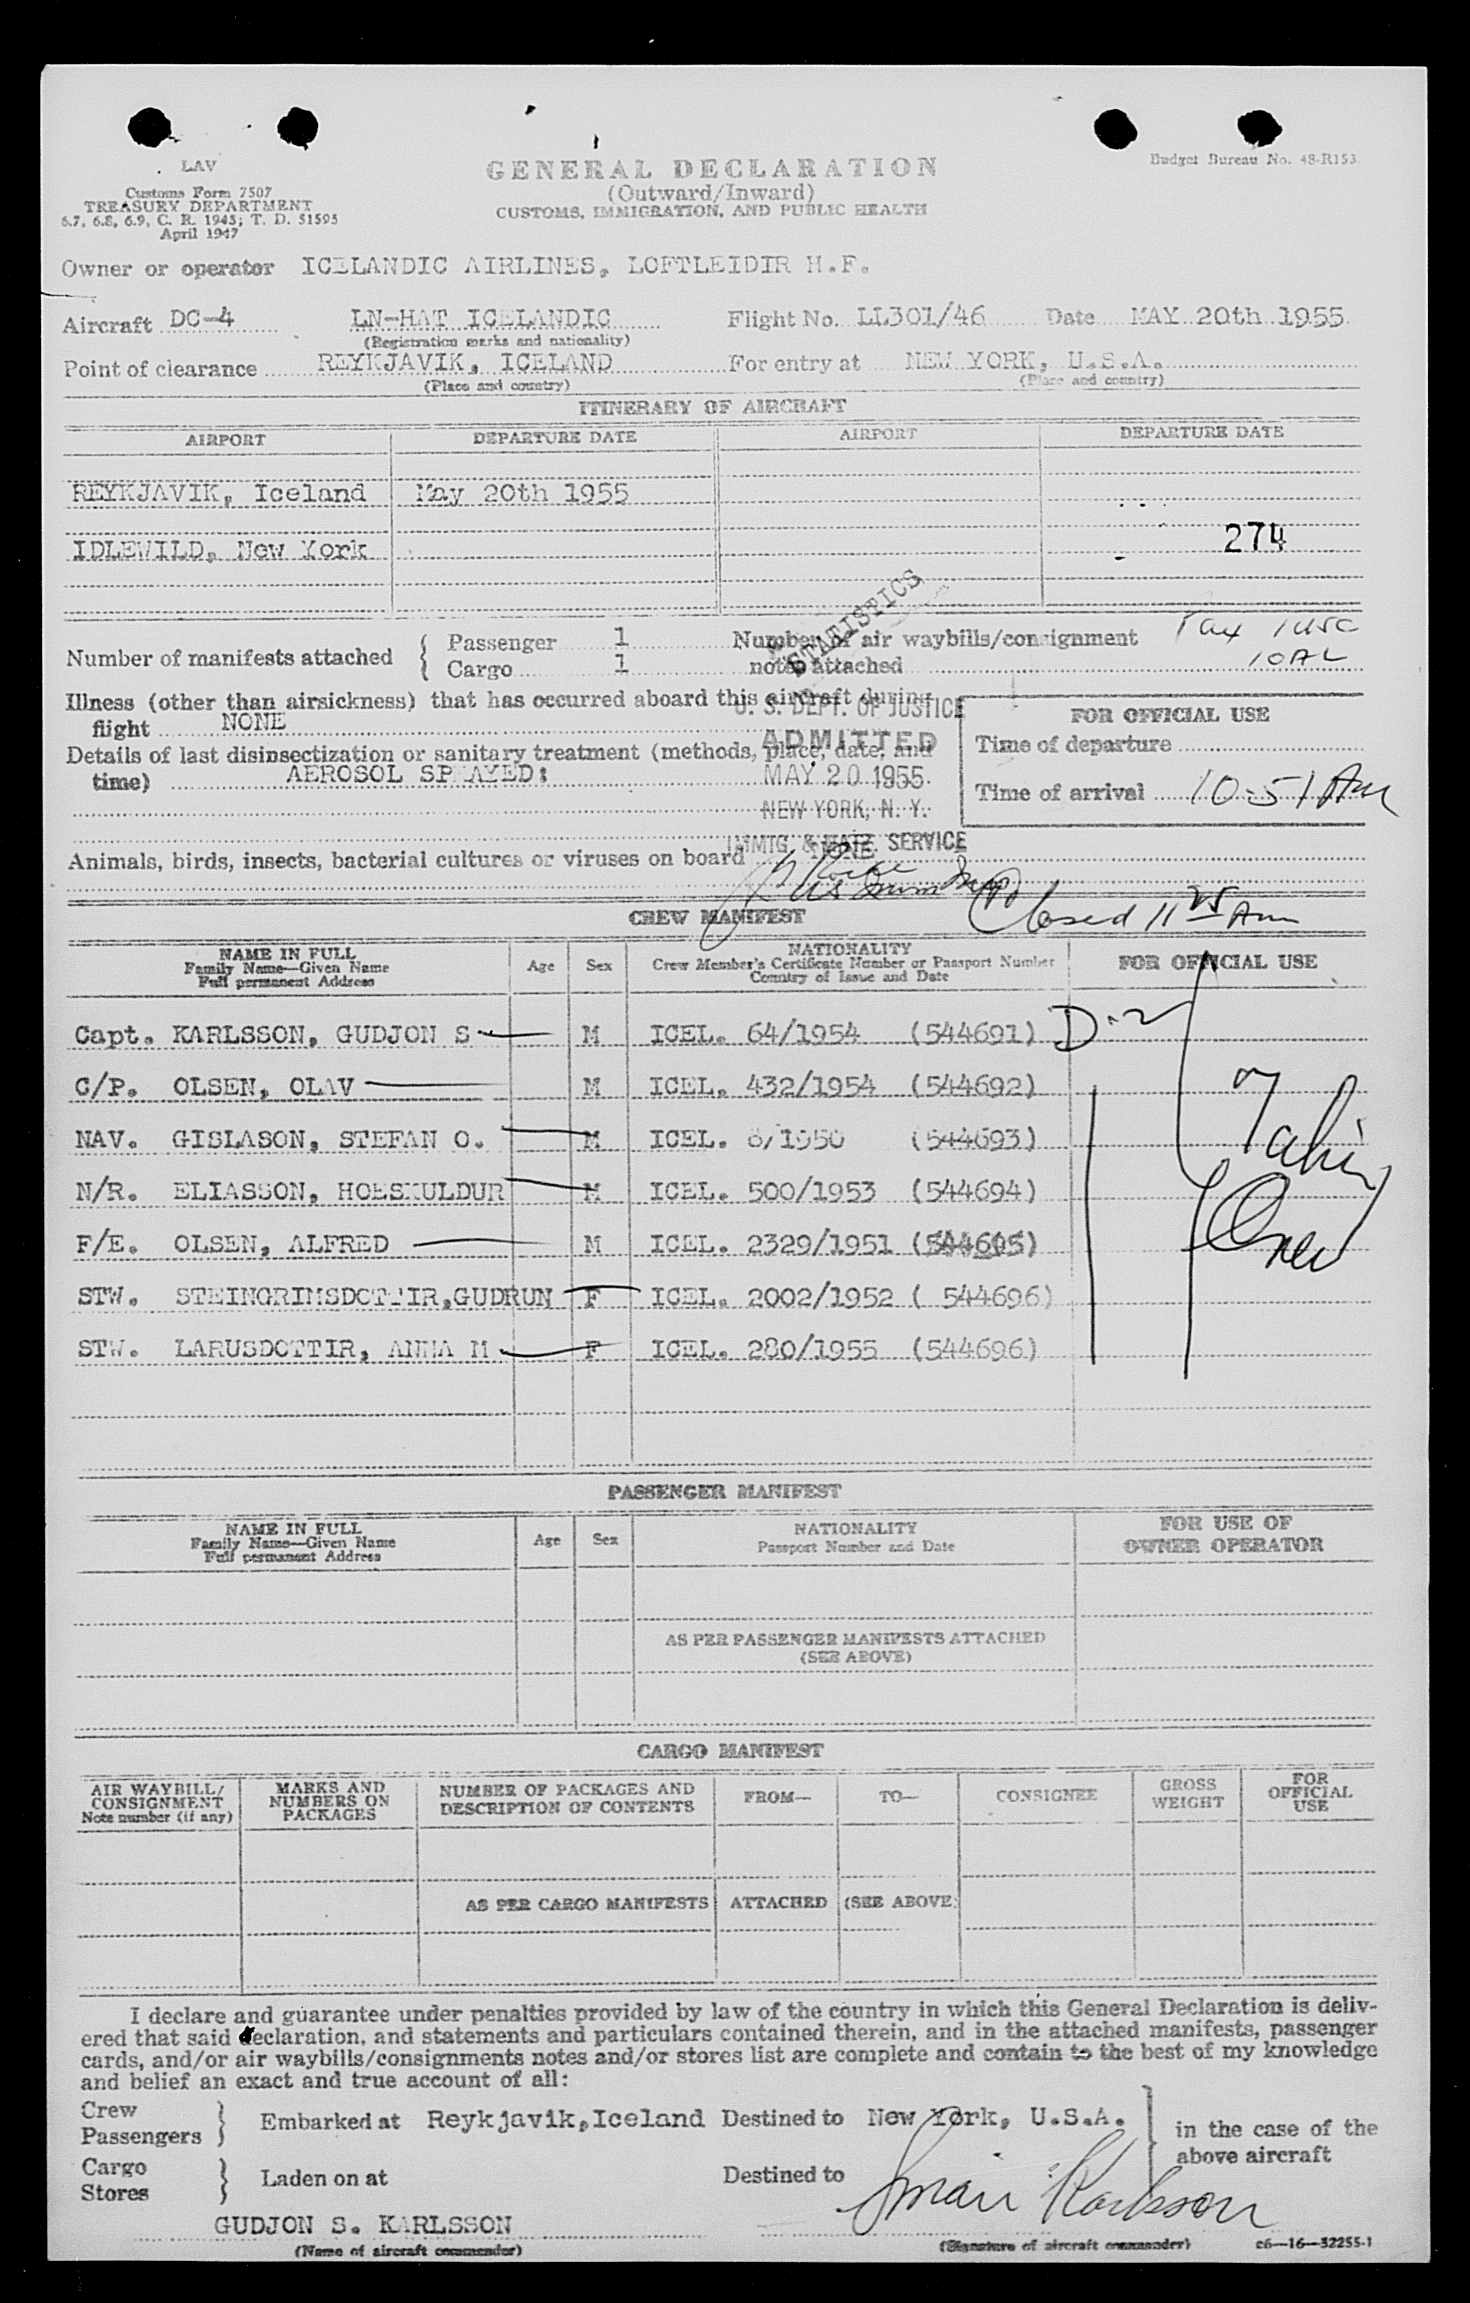 LAV
Customs Form 7507
TREASURY DEPARTMENT
6.7, 6.8, 6.9, C. R. 1943; T. D. 51595
April 1947
GENERAL DECLARATION
(Outward/Inward)
CUSTOMS, IMMIGRATION, AND PUBLIC HEALTH
Budget Bureau No. 48-R153.
Owner or operator ICELANDIC AIRLINES, LOFTLEIDIR H.F.
Aircraft DC-4 LN-HAT ICELANDIC Flight No. LL301/46 Date MAY 20th 1955
(Registration marks and nationality)
Point of clearance REYKJAVIK, ICELAND For entry at NEW YORK, U.S.A.
(Place and country) (Place and country)
ITINERARY OF AIRCRAFT
AIRPORT DEPARTURE DATE AIRPORT DEPARTURE DATE
REYKJAVIK, Iceland May 20th 1955
IDLEWILD, New York 274
STATISTICS
Number of manifests attached { Passenger 1 Number of air waybills/consignment
Cargo 1 notes attached 10 AL
Illness (other than airsickness) that has occurred aboard this aircraft during
flight NONE
Details of last disinsectization or sanitary treatment (methods, place, date, and
time) AEROSOL SPRAYED:
U. S. DEPT. OF JUSTICE
ADMITTED
MAY 20 1955
NEW YORK, N. Y.
IMMIG. & NATZ. SERVICE
FOR OFFICIAL USE
Time of departure
Time of arrival 10-51 AM
Animals, birds, insects, bacterial cultures or viruses on board NONE
Closed 11 25 Am
CREW MANIFEST
NAME IN FULL
Family Name—Given Name
Full permanent Address
Age Sex
NATIONALITY
Crew Member's Certificate Number or Passport Number
Country of Issue and Date
FOR OFFICIAL USE
Capt. KARLSSON, GUDJON S M ICEL. 64/1954 (544691) D-2
C/P. OLSEN, OLAV M ICEL. 432/1954 (544692)
NAV. GISLASON, STEFAN O. M ICEL. 8/1950 (544693)
N/R. ELIASSON, HOESKULDUR M ICEL. 500/1953 (544694)
F/E. OLSEN, ALFRED M ICEL. 2329/1951 (544695)
STW. STEINGRIMSDOTTIR,GUDRUN F ICEL. 2002/1952 ( 544696)
STW. LARUSDOTTIR, ANNA M F ICEL. 280/1955 (544696)
PASSENGER MANIFEST
NAME IN FULL
Family Name—Given Name
Full permanent Address
Age Sex
NATIONALITY
Passport Number and Date
FOR USE OF
OWNER OPERATOR
AS PER PASSENGER MANIFESTS ATTACHED
(SEE ABOVE)
CARGO MANIFEST
AIR WAYBILL/
CONSIGNMENT
Note number (if any)
MARKS AND
NUMBERS ON
PACKAGES
NUMBER OF PACKAGES AND
DESCRIPTION OF CONTENTS
FROM— TO— CONSIGNEE
GROSS
WEIGHT
FOR
OFFICIAL
USE
AS PER CARGO MANIFESTS ATTACHED (SEE ABOVE)
I declare and guarantee under penalties provided by law of the country in which this General Declaration is deliv-
ered that said declaration, and statements and particulars contained therein, and in the attached manifests, passenger
cards, and/or air waybills/consignments notes and/or stores list are complete and contain to the best of my knowledge
and belief an exact and true account of all:
Crew
Passengers } Embarked at Reykjavik,Iceland Destined to New York, U.S.A.
in the case of the
above aircraft
Cargo
Stores } Laden on at Destined to
Smári Karlsson
GUDJON S. KARLSSON
(Name of aircraft commander) (Signature of aircraft commander) c6—16—52255-1